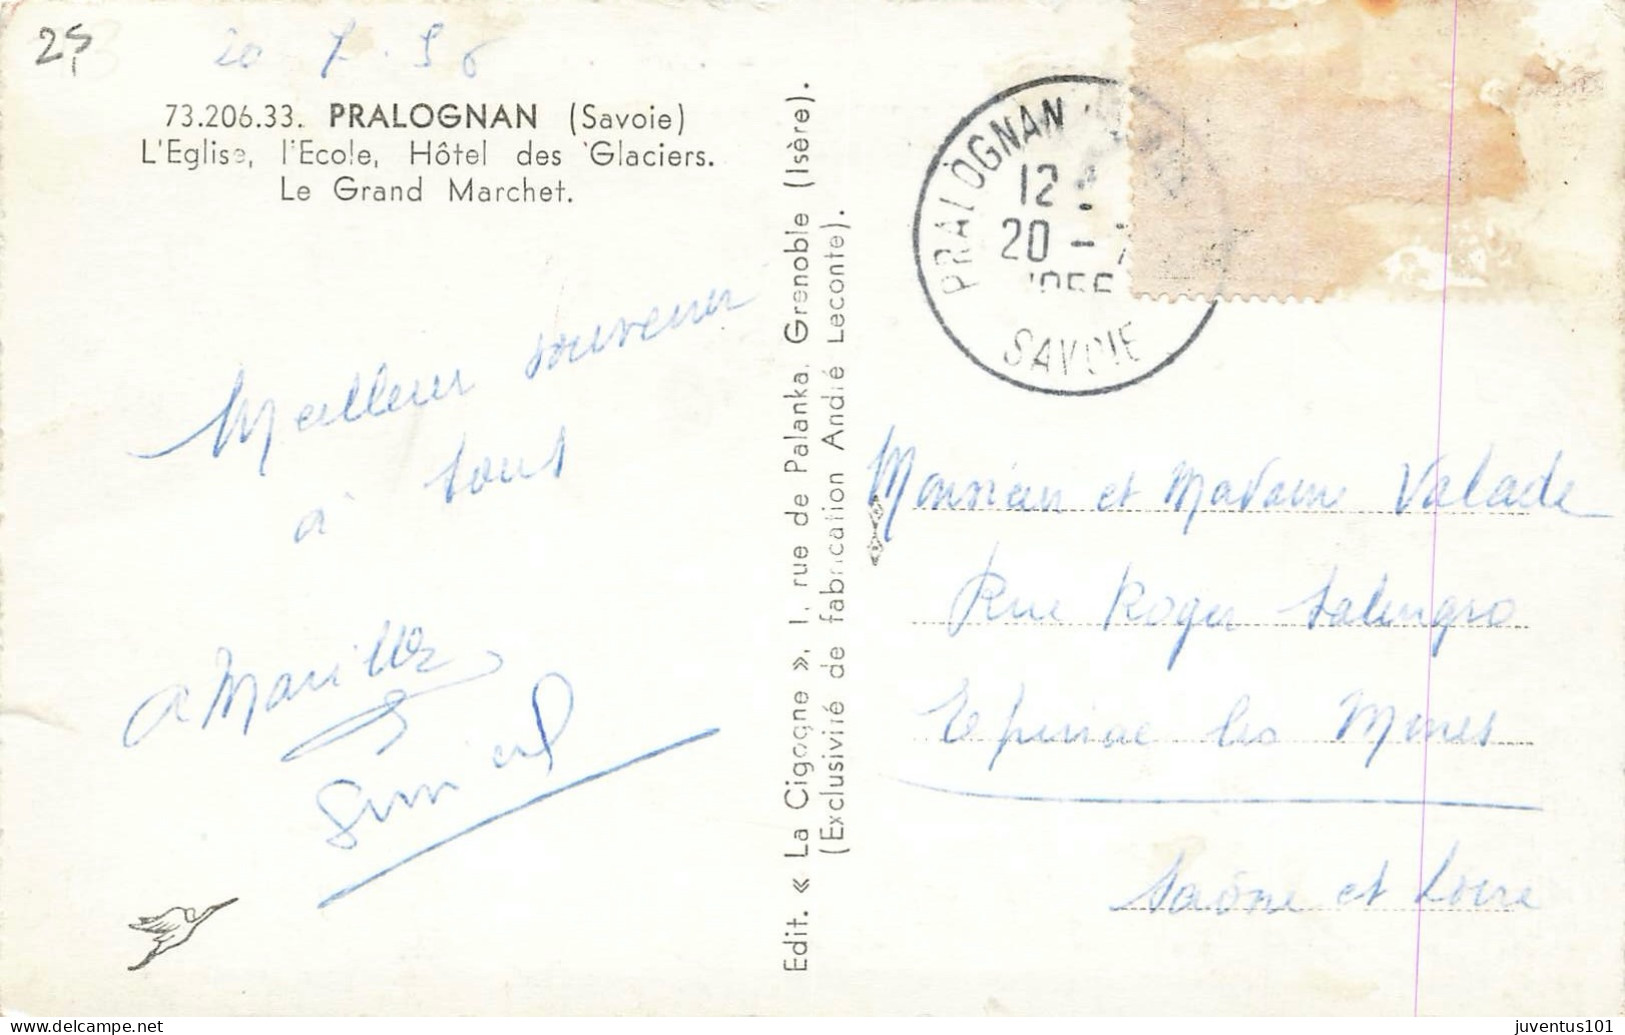 25
20 7.56
73.206.33. PRALOGNAN (Savoie)
L'Eglise, l'Ecole, Hôtel des Glaciers.
Le Grand Marchet.
Meilleur souvenir
à tous
Edit. « La Cigogne », 1, rue de Palanka, Grenoble (Isère).
(Exclusivité de fabrication André Leconte).
PRALOGNAN
12
20 - 7
SAVOIE
Monsieur et Madame Valade
Rue Roger Salengro
Epinac les Mines
Saône et Loire
juventus101